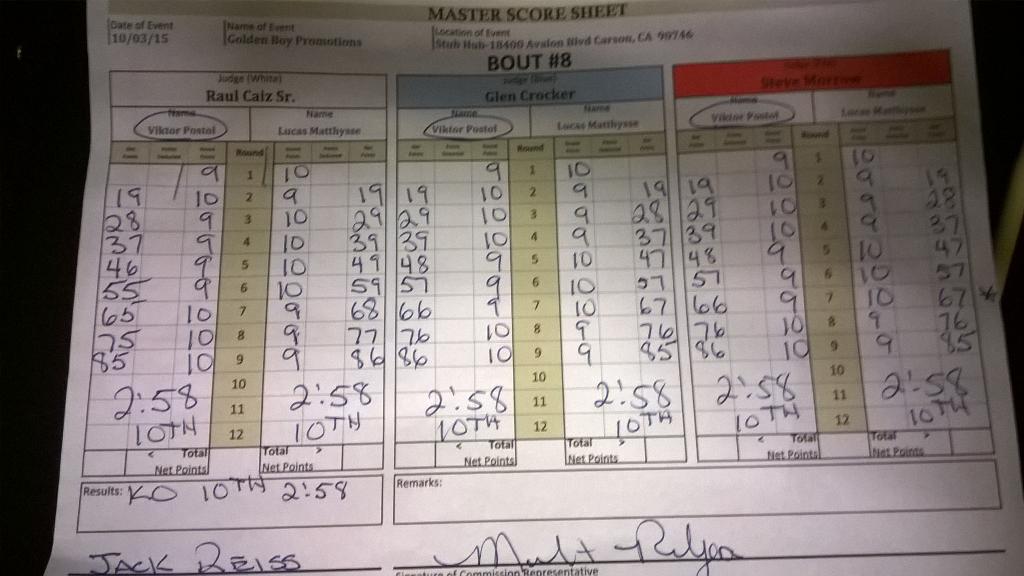 MASTER SCORE SHEET
Date of Event Name of Event Location of Event
10/03/15 Golden Boy Promotions Stub Hub-18400 Avalon Blvd Carson, CA 90746
BOUT #8
Judge (White) Judge (Blue)
Raul Caiz Sr. Glen Crocker Steve Morrow
Name Name Name Name Name Name
Viktor Postol Lucas Matthysse Viktor Postol Lucas Matthysse Viktor Postol Lucas Matthysse
Round Round Round
9 1 10 9 1 10 9 1 10
19 10 2 9 19 19 10 2 9 19 19 10 2 9 19
28 9 3 10 29 29 10 3 9 28 29 10 3 9 28
37 9 4 10 39 39 10 4 9 37 39 10 4 9 37
46 9 5 10 49 48 9 5 10 47 48 9 5 10 47
55 9 6 10 59 57 9 6 10 57 57 9 6 10 57
65 10 7 9 68 66 9 7 10 67 66 9 7 10 67 *
75 10 8 9 77 76 10 8 9 76 76 10 8 9 76
85 10 9 9 86 86 10 9 9 85 86 10 9 9 85
10 10 10
2:58 11 2:58 2:58 11 2:58 2:58 11 2:58
10TH 12 10TH 10TH 12 10TH 10TH 12 10TH
< Total Total > < Total Total > < Total Total >
Net Points Net Points Net Points Net Points Net Points Net Points
Results: KO 10TH 2:58 Remarks:
JACK REISS
Signature of Commission Representative